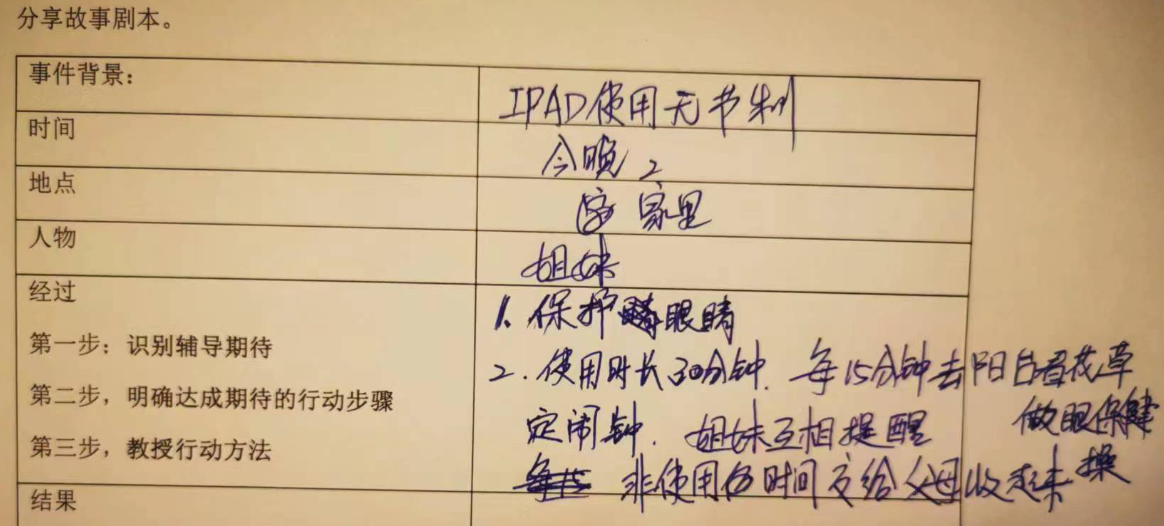 分享故事剧本。
事件背景：
IPAD使用无节制
时间
今晚
地点
家里
人物
姐妹
经过
1. 保护眼睛
第一步：识别辅导期待
2. 使用时长30分钟. 每15分钟去阳台看花草
第二步，明确达成期待的行动步骤
定闹钟. 姐妹互相提醒 做眼保健操
第三步，教授行动方法
非使用时间交给父母收起来
结果